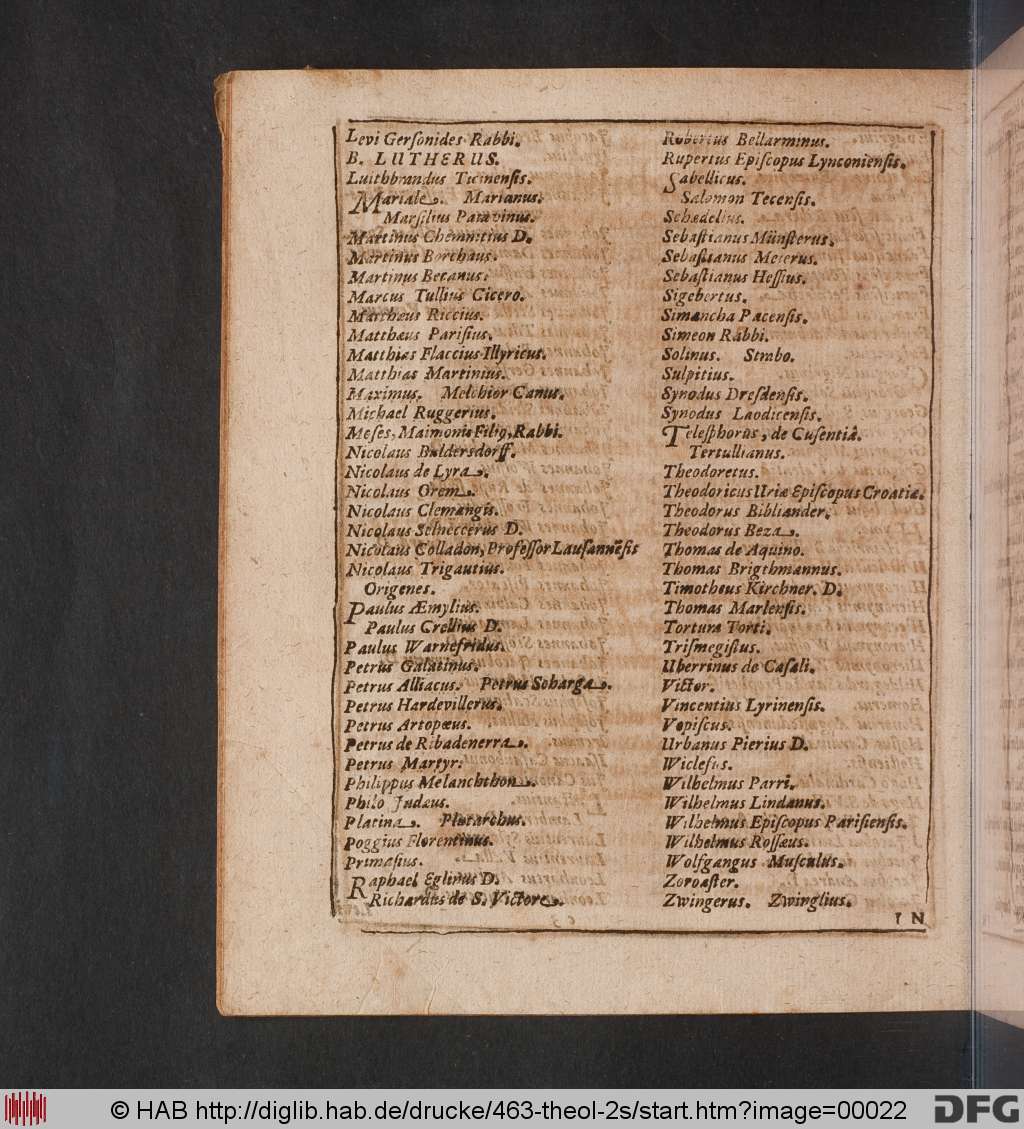 Levi Gerſonides Rabbi.
B. LUTHERUS.
Luithbrandus Ticinenſis.
Mariale. Marianus.
Marſilius Patavinus.
Martinus Chemnitius D.
Martinus Borrhaus.
Martinus Becanus.
Marcus Tullius Cicero.
Matthæus Riccius.
Matthæus Pariſius.
Matthias Flaccius Illyricus.
Matthias Martinius.
Maximus. Melchior Canus.
Michael Ruggerius.
Moſes, Maimonis Filiꝰ, Rabbi.
Nicolaus Baldersdorff.
Nicolaus de Lyra.
Nicolaus Orem.
Nicolaus Clemangis.
Nicolaus Selneccerus D.
Nicolaus Colladon, Profeſſor Lauſannēſis
Nicolaus Trigautius.
Origenes.
Paulus Æmylius.
Paulus Crellius D.
Paulus Warnefridus.
Petrus Galatinus.
Petrus Alliacus. Petrus Scharga.
Petrus Hardevillerus.
Petrus Artopœus.
Petrus de Ribadenerra.
Petrus Martyr.
Philippus Melanchthon.
Philo Judæus.
Platina. Plutarchus.
Poggius Florentinus.
Primaſius.
Raphael Eglinus D.
Richardus de S. Victore.
Robertus Bellarminus.
Rupertus Epiſcopus Lynconienſis.
Sabellicus.
Salomon Tecenſis.
Schedelius.
Sebaſtianus Münſterus.
Sebaſtianus Meierus.
Sebaſtianus Heſſius.
Sigebertus.
Simancha Pacenſis.
Simeon Rabbi.
Solinus. Strabo.
Sulpitius.
Synodus Dreſdenſis.
Synodus Laodicenſis.
Teleſphorus, de Cuſentiâ.
Tertullianus.
Theodoretus.
Theodoricus Uriæ Epiſcopus Croatiæ.
Theodorus Bibliander.
Theodorus Beza.
Thomas de Aquino.
Thomas Brigthmannus.
Timotheus Kirchner. D.
Thomas Marlenſis.
Tortura Torti.
Triſmegiſtus.
Uberrinus de Caſali.
Victor.
Vincentius Lyrinenſis.
Vopiſcus.
Urbanus Pierius D.
Wiclefus.
Wilhelmus Parri.
Wilhelmus Lindanus.
Wilhelmus Epiſcopus Pariſienſis.
Wilhelmus Roſſæus.
Wolfgangus Muſculus.
Zoroaſter.
Zwingerus. Zwinglius.
IN
© HAB http://diglib.hab.de/drucke/463-theol-2s/start.htm?image=00022
DFG